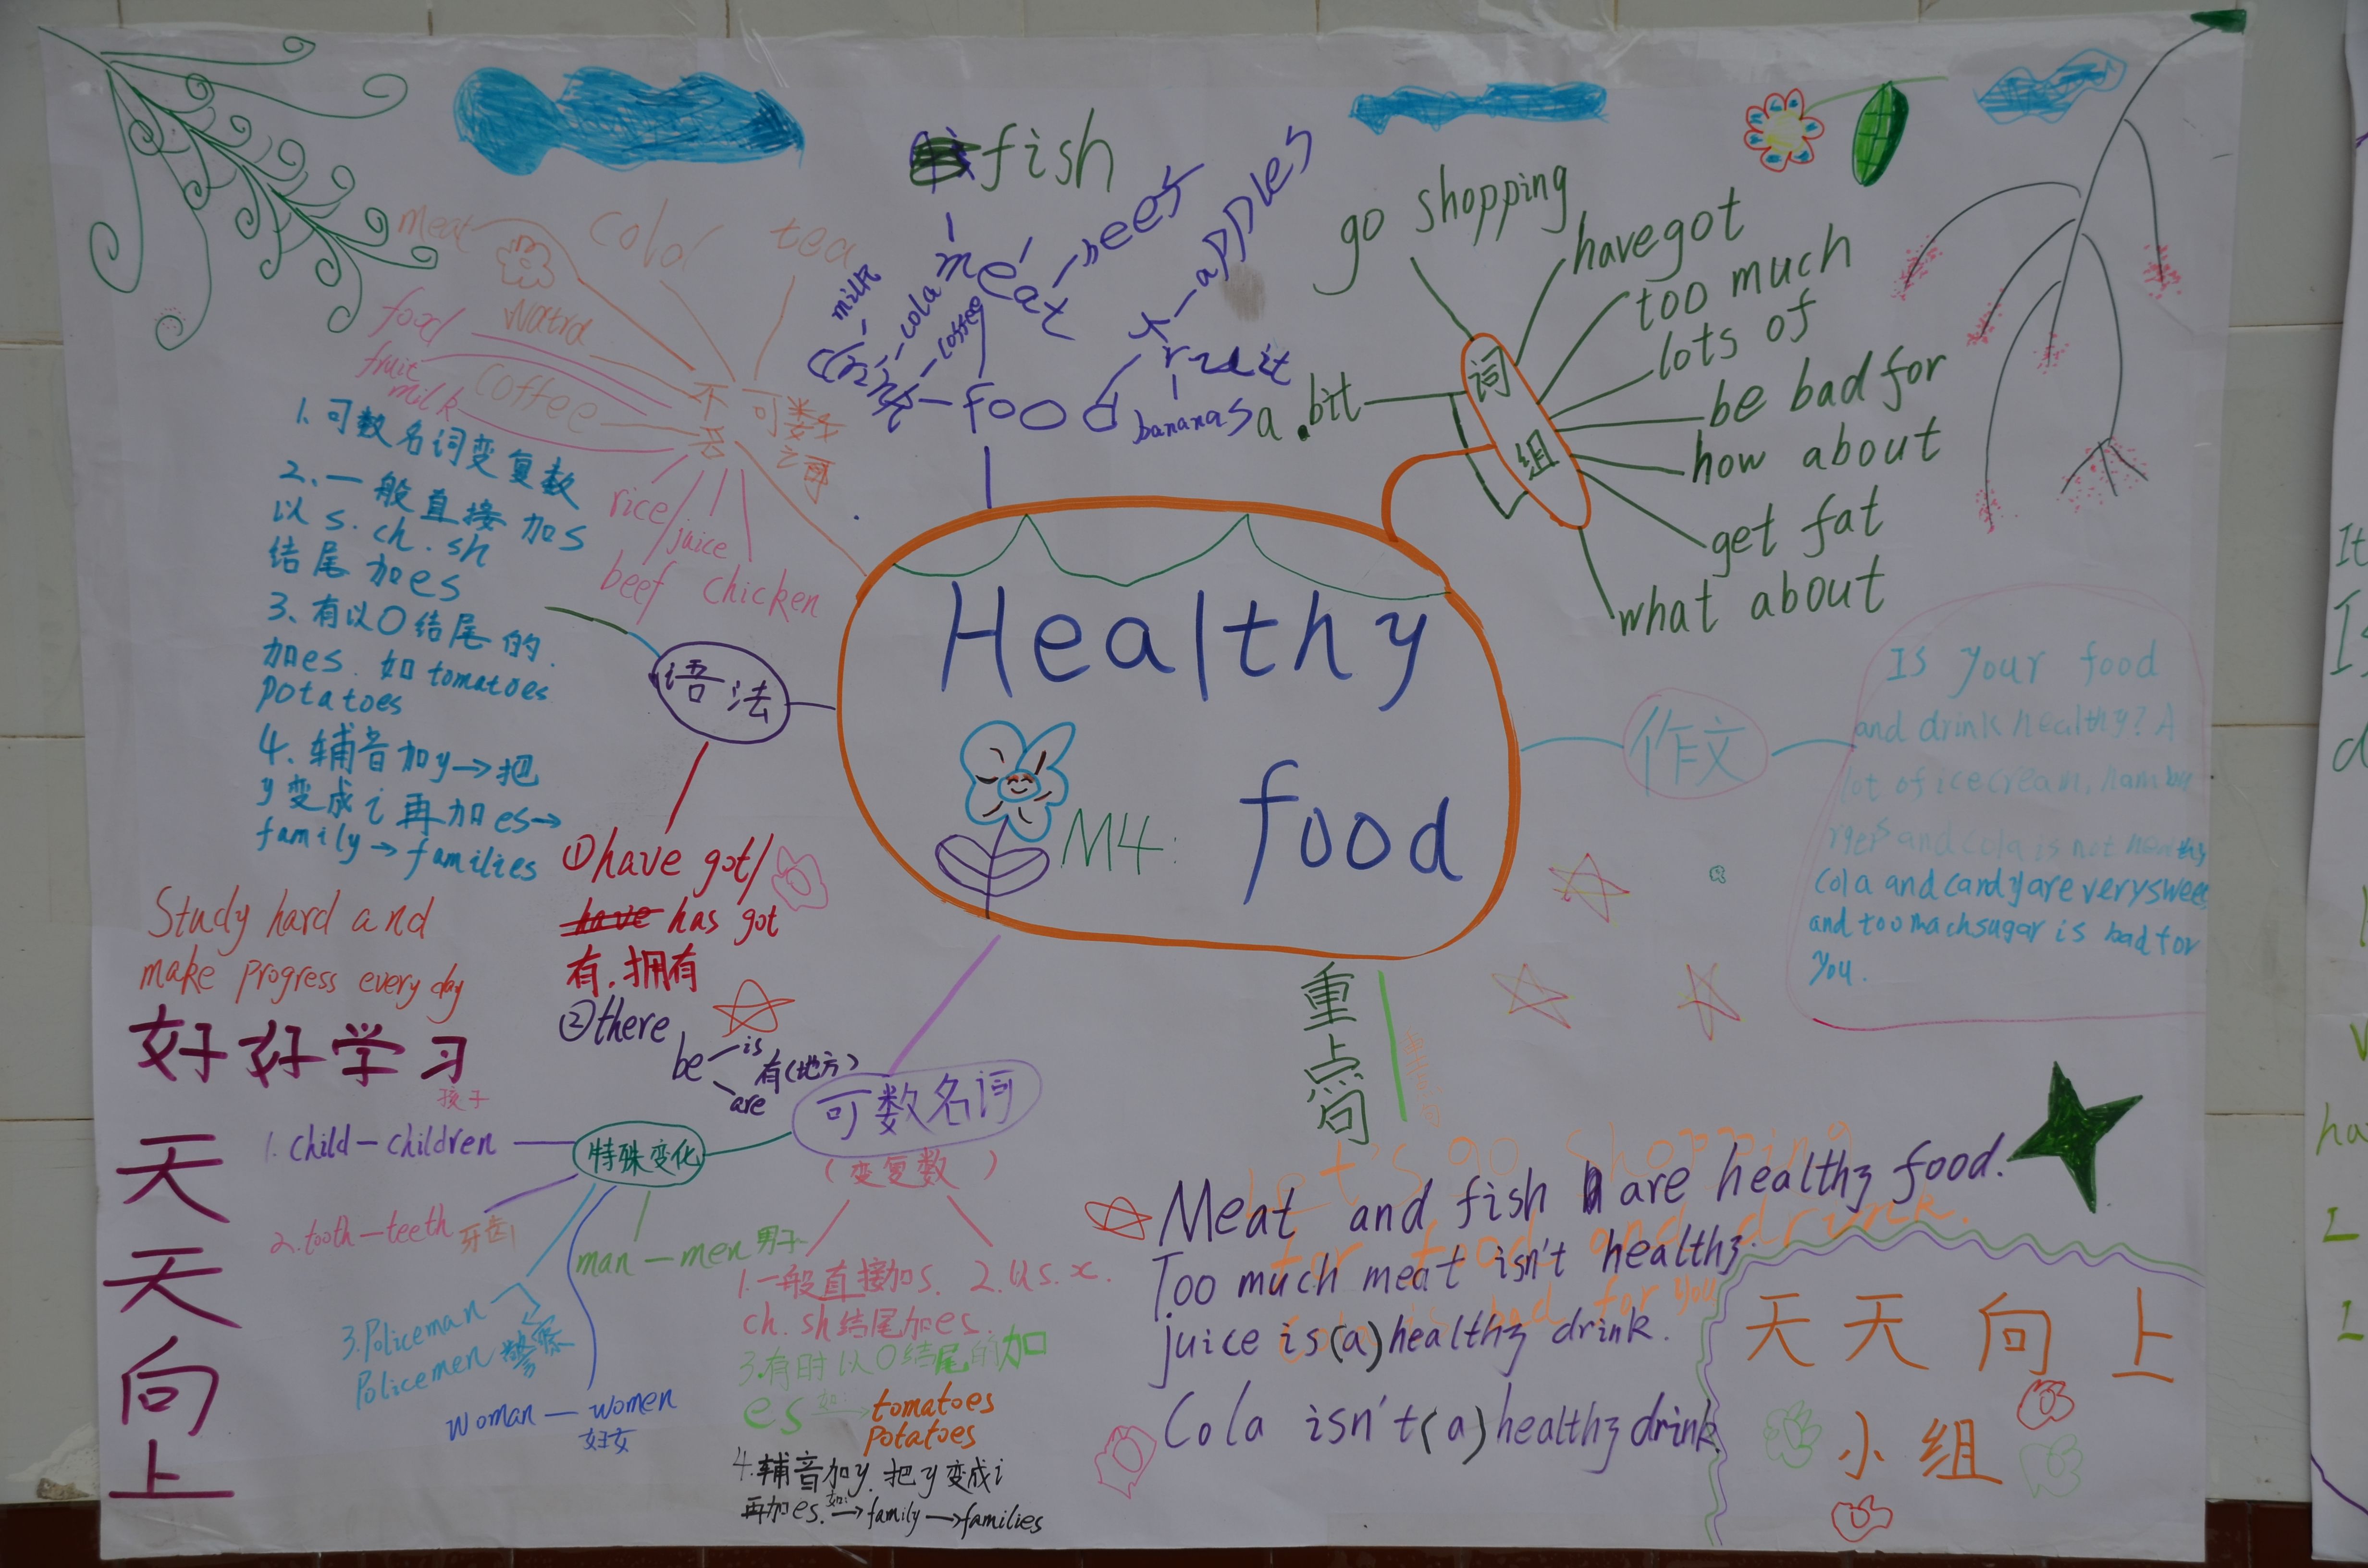 fish
meat
beef
apples
milk
cola
coffee
drink
food
fruit
bananas
meat
cola
tea
food
fruit
milk
coffee
不可数名词
rice
juice
beef chicken
go shopping
have got
too much
lots of
be bad for
how about
get fat
what about
a bit
词组
Healthy
M4: food
语法
1. 可数名词变复数
2. 一般直接加s
以s.ch.sh
结尾加es
3、有以O结尾的.
加es.如tomatoes
potatoes
4、辅音加y→把
y变成i再加es→
family→families
①have got/
has got
有.拥有
②there
be
is
are
有(地方)
作文
Is your food
and drink healthy? A
lot of icecream, hambur
rgers and cola is not healthy
Cola and candy are very sweet
and too mach sugar is bad for
you.
Study hard and
make progress every day
好好学习
天天向上
可数名词
(变复数)
特殊变化
孩子
1. child—children
2. tooth—teeth 牙齿
3. Policeman
Policemen 警察
man—men 男子
woman—women
妇女
1.一般直接加s. 2.以s.x.
ch.sh结尾加es.
3.有时以O结尾的加
es 如:→ tomatoes
potatoes
4.辅音加y.把y变成i
再加es. 如:→family→families
重点句
重点句
Let's go shopping
for food and drink.
Cola is bad for you
Meat and fish are healthy food.
Too much meat isn't healthy.
juice is(a)healthy drink.
Cola isn't(a)healthy drink.
天天向上
小组